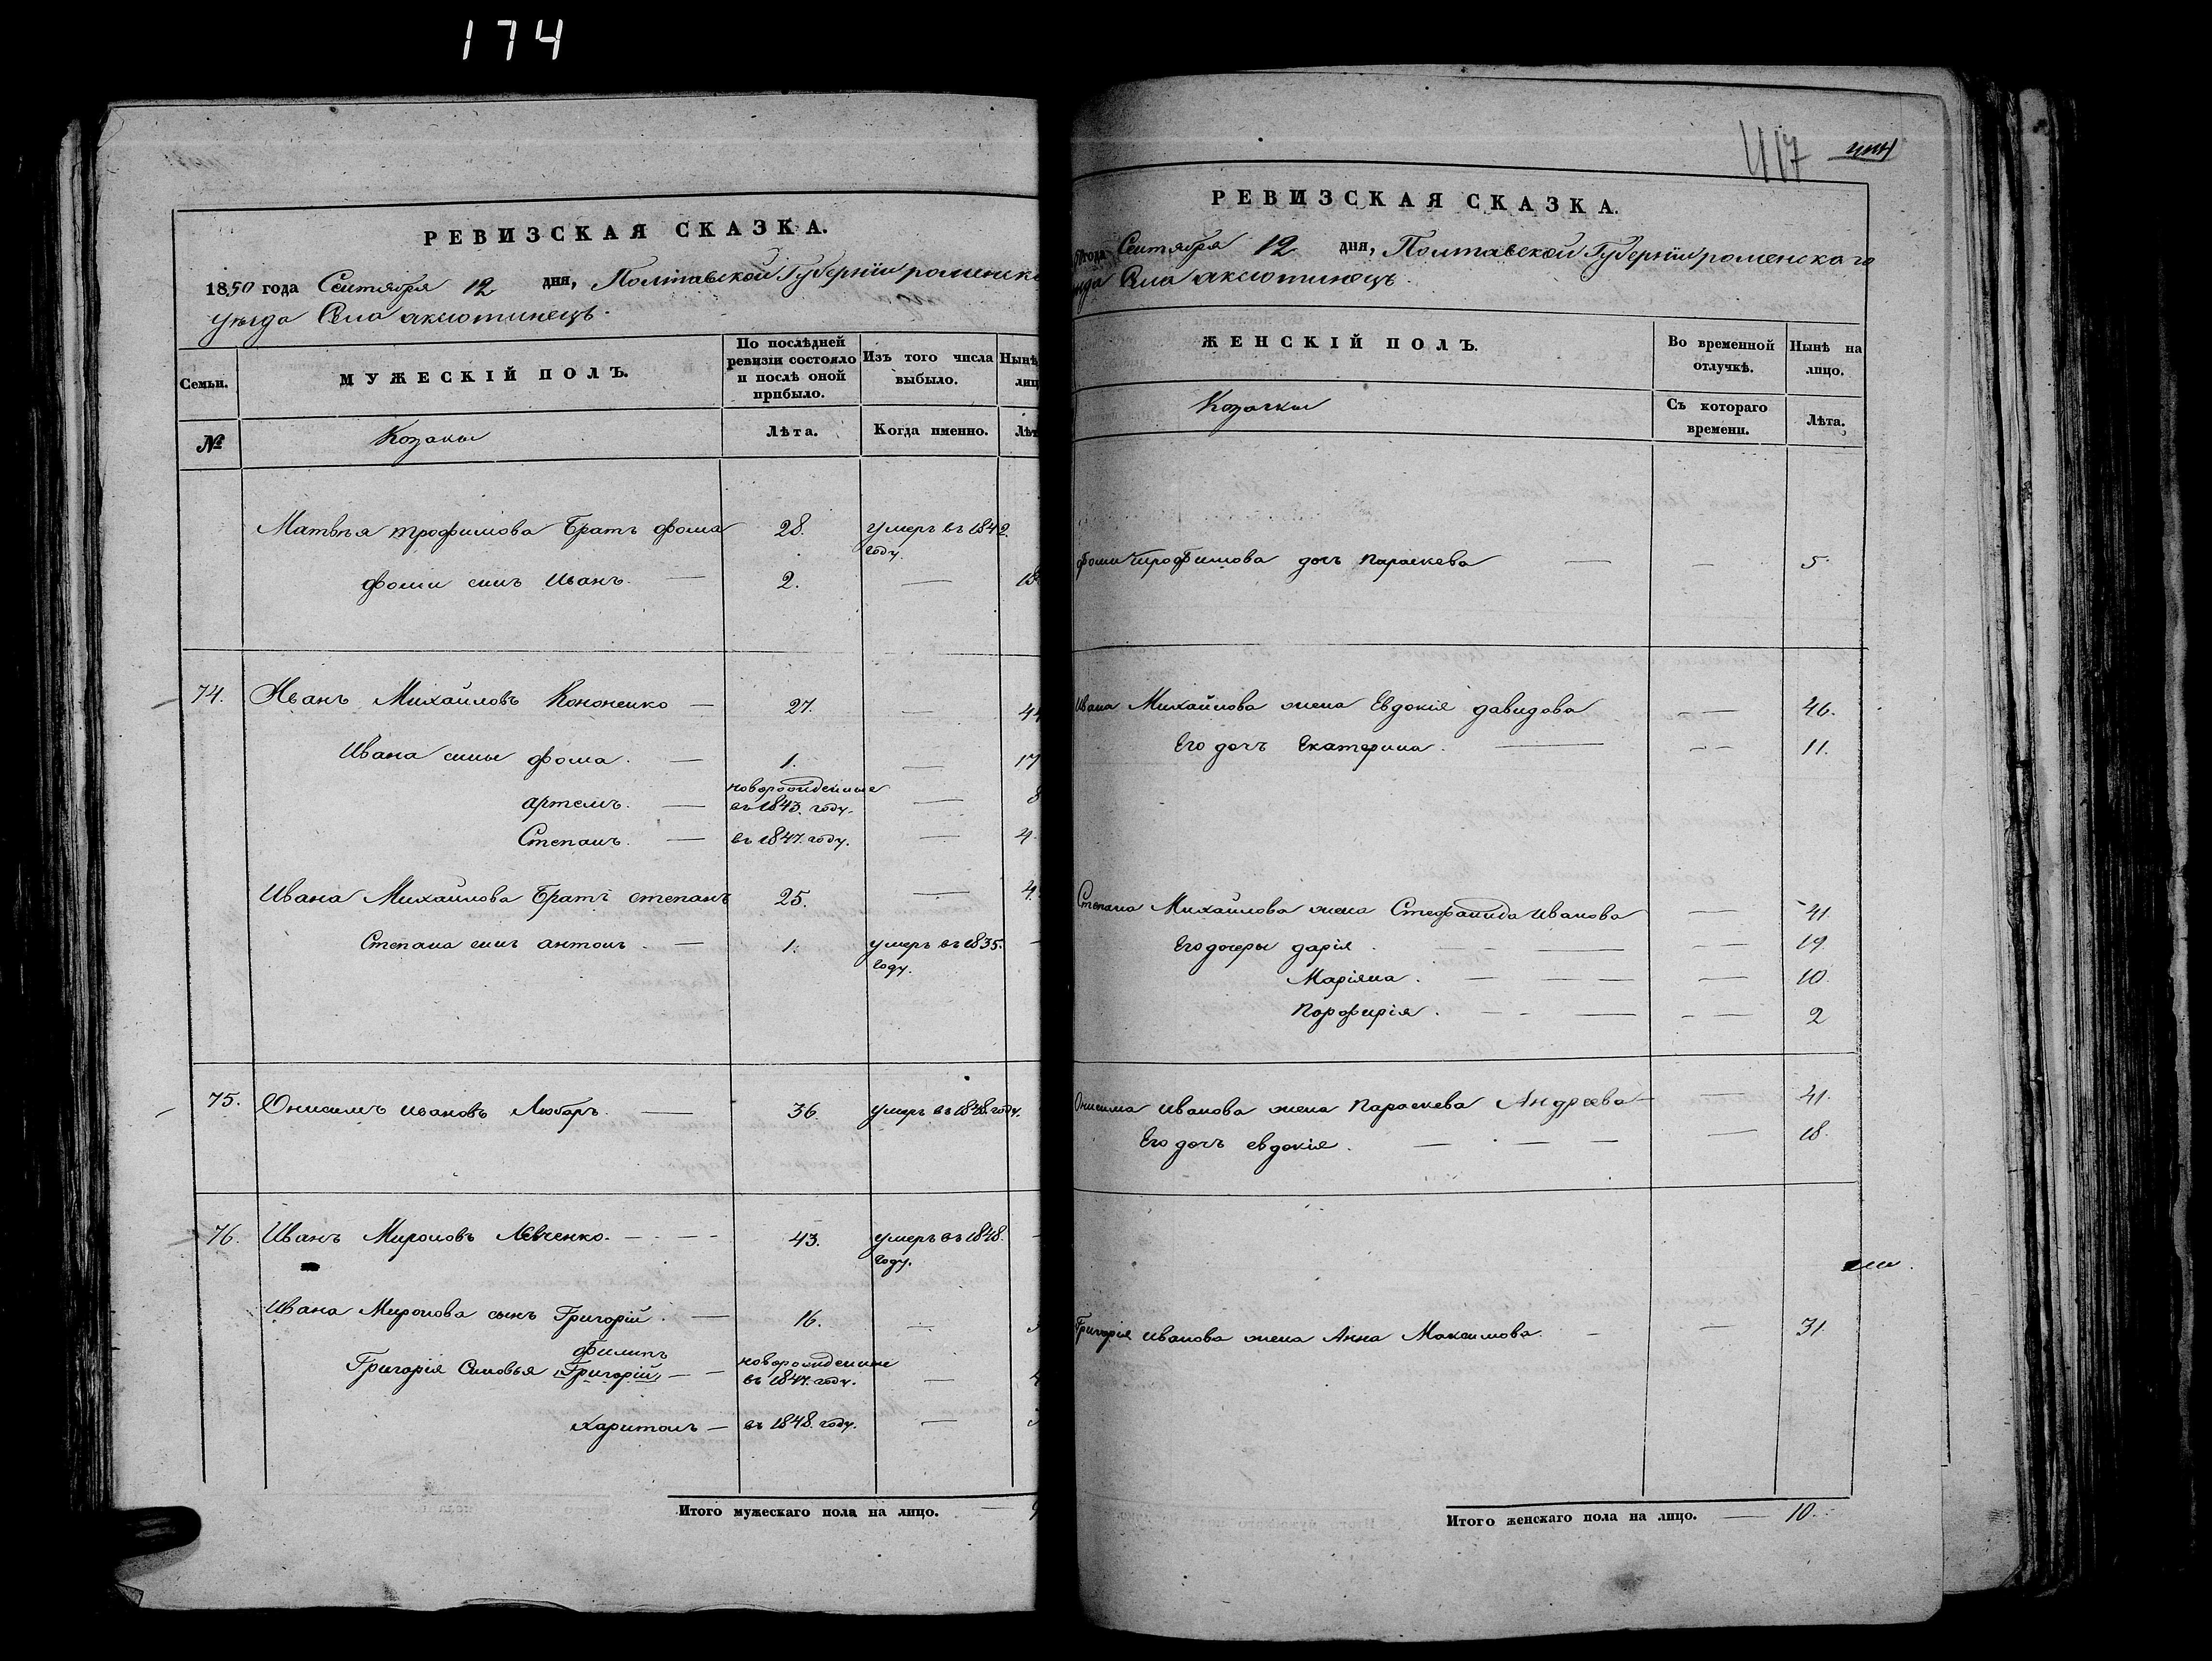 174
РЕВИЗСКАЯ СКАЗКА.
1850 года Сентября 12 дня, Полтавской Губерніи роменско
уезда Села аксютинець.
Семьи. МУЖЕСКІЙ ПОЛЪ. По послѣдней ревизіи состояло и послѣ оной прибыло. Изъ того числа выбыло. Нынѣ лиц
№ Козаки Лѣта. Когда именно. Лѣт
Матвѣя трофимова Братъ фома 28. умеръ въ 1842.
году.
фоми синъ Иванъ. — 2. — 18
74. Иванъ Михайловъ Кононенко — 27. — 44
Ивана сины фома. — 1. — 17
новорожденные
артемъ. — въ 1843. году. — 8
Степанъ. — въ 1847. году. — 4
Ивана Михаилова Братъ степанъ 25. — 4
Степана синъ антонъ. — 1. умеръ въ 1835. —
году.
75. Онисимъ ивановъ Любаръ. — 36. умеръ въ 1848. году.
76. Иванъ Мироновъ Левченко. — 43. умеръ въ 1848. —
году.
Ивана Миронова сынъ Григорій. — 16. — 3
филипъ
Григорія Синовья (Григорій) — новорожденные
въ 1847. году. — 4
харитонъ — въ 1848. году. — 3
Итого мужескаго пола на лицо. — 9
417
РЕВИЗСКАЯ СКАЗКА.
года Сентября 12 дня, Полтавской Губерніи роменскаго
изда Села аксютинець.
ЖЕНСКІЙ ПОЛЪ. Во временной отлучкѣ. Нынѣ на лицо.
Козачки Съ котораго времени. Лѣта.
фоми трофимова дочъ параскева — — 5.
Ивана Михайлова жена Евдокія давидова — 46.
Его дочъ Екатерина. — — 11.
Степана Михаилова жена Стефанида иванова — 41.
Его дочеры дарія. — — 19.
Маріяна. — — 10.
порфирія. — — 2
Онисима иванова жена параскева Андреева — 41.
Его дочъ евдокія. — — 18.
Григорія иванова жена Анна Максимова. — — 31.
Итого женскаго пола на лицо. — 10.